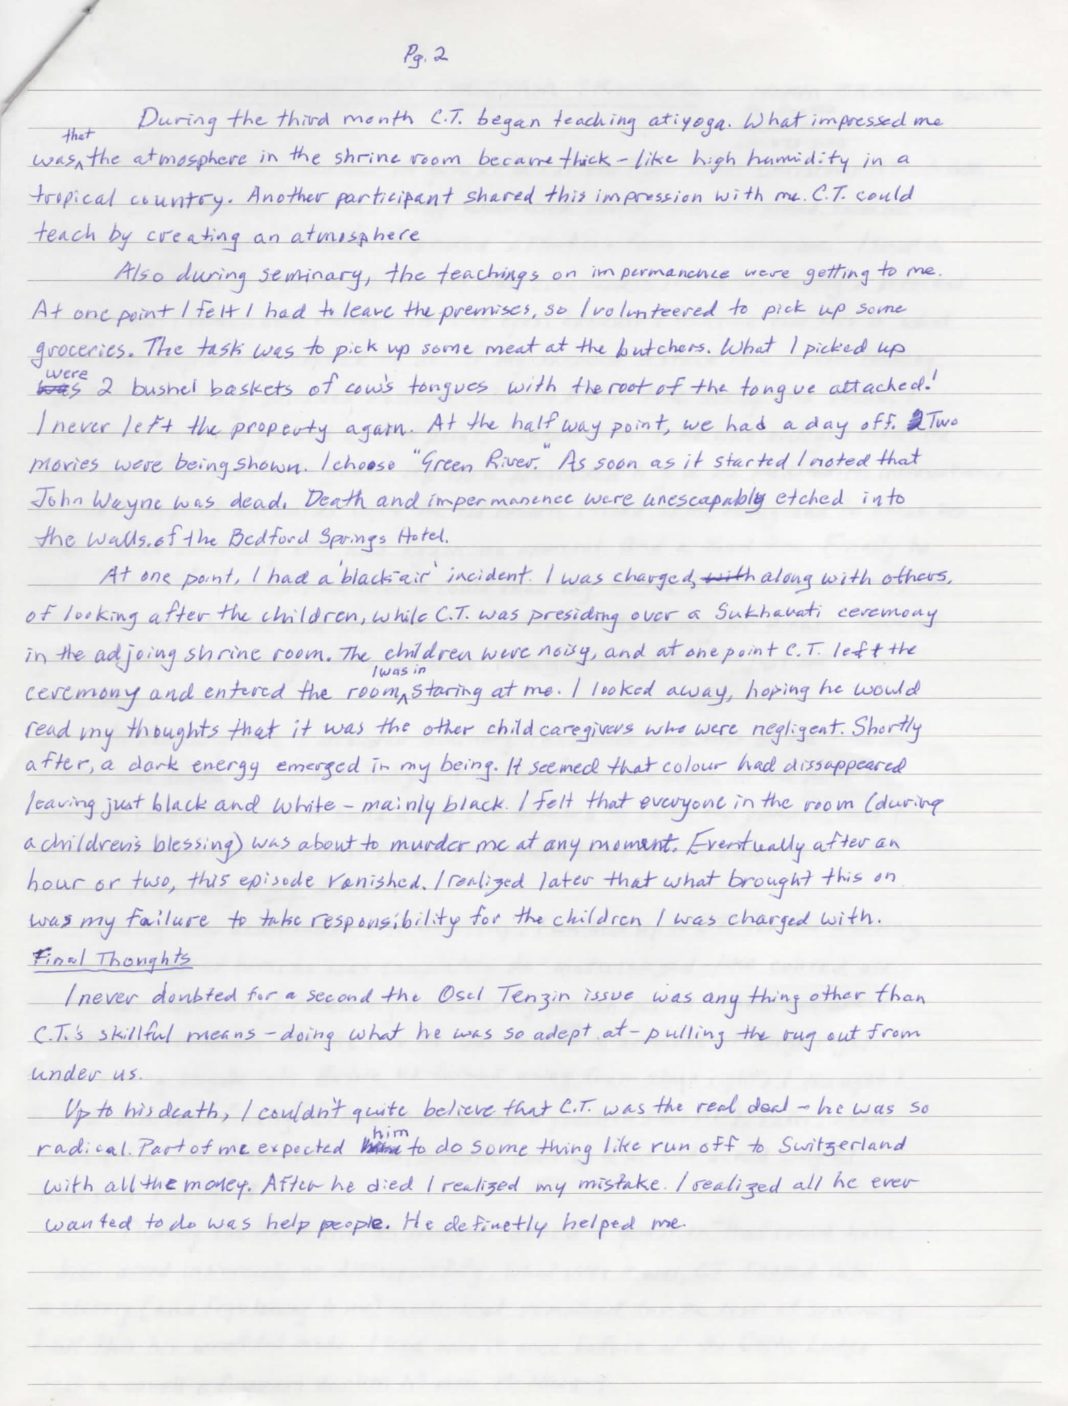 Pg. 2
During the third month C.T. began teaching atiyoga. What impressed me
that
was ^ the atmosphere in the shrine room became thick - like high humidity in a
tropical country. Another participant shared this impression with me. C.T. could
teach by creating an atmosphere
Also during seminary, the teachings on impermanence were getting to me.
At one point I felt I had to leave the premises, so I volunteered to pick up some
groceries. The task was to pick up some meat at the butchers. What I picked up
were
was 2 bushel baskets of cow's tongues with the root of the tongue attached!
I never left the property again. At the half way point, we had a day off. Two
movies were being shown. I choose "Green River." As soon as it started I noted that
John Wayne was dead. Death and impermanence were unescapably etched into
the walls of the Bedford Springs Hotel.
At one point, I had a 'black air' incident. I was charged, with along with others,
of looking after the children, while C.T. was presiding over a Sukhavati ceremony
in the adjoing shrine room. The children were noisy, and at one point C.T. left the
I was in
ceremony and entered the room ^ staring at me. I looked away, hoping he would
read my thoughts that it was the other child caregivers who were negligent. Shortly
after, a dark energy emerged in my being. It seemed that colour had dissappeared
leaving just black and white - mainly black. I felt that everyone in the room (during
a children's blessing) was about to murder me at any moment. Eventually after an
hour or two, this episode vanished. I realized later that what brought this on
was my failure to take responsibility for the children I was charged with.
Final Thoughts
I never doubted for a second the Osel Tenzin issue was any thing other than
C.T.'s skillful means - doing what he was so adept at - pulling the rug out from
under us.
Up to his death, I couldn't quite believe that C.T. was the real deal - he was so
him
radical. Part of me expected to do some thing like run off to Switzerland
with all the money. After he died I realized my mistake. I realized all he ever
wanted to do was help people. He definetly helped me.